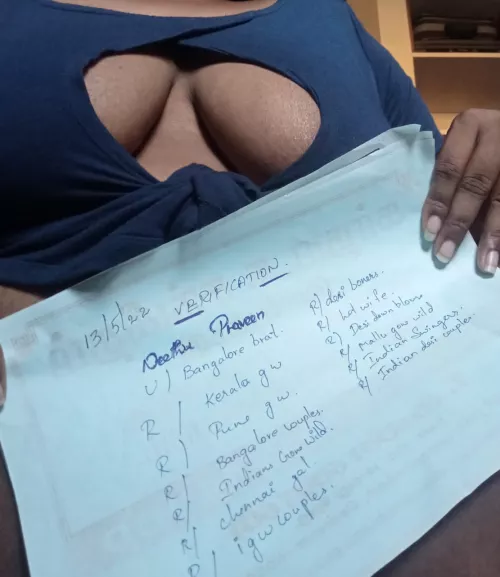 13/5/22 VERIFICATION.
Neethu Praveen
U/ Bangalore brat.
R/ Kerala gw
R/ Pune gw.
R/ Bangalore couples.
R/ Indians Gone Wild.
R/ chennai gal
R/ igw couples.
R/ desi boners.
R/ hot wife.
R/ Desi down blouse
R/ Mallu gone wild
R/ Indian Swingers.
R/ Indian desi couples.